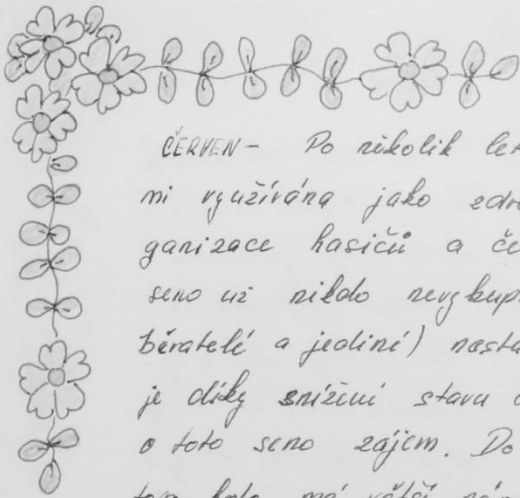 ČERVEN - Po několik let
mi využívána jako zdro
ganizace hasičů a če
seno už nikdo nevykup
běratelé a jediní) nasta
je díky snížení stavu
o toto seno zájem. Do
má větší